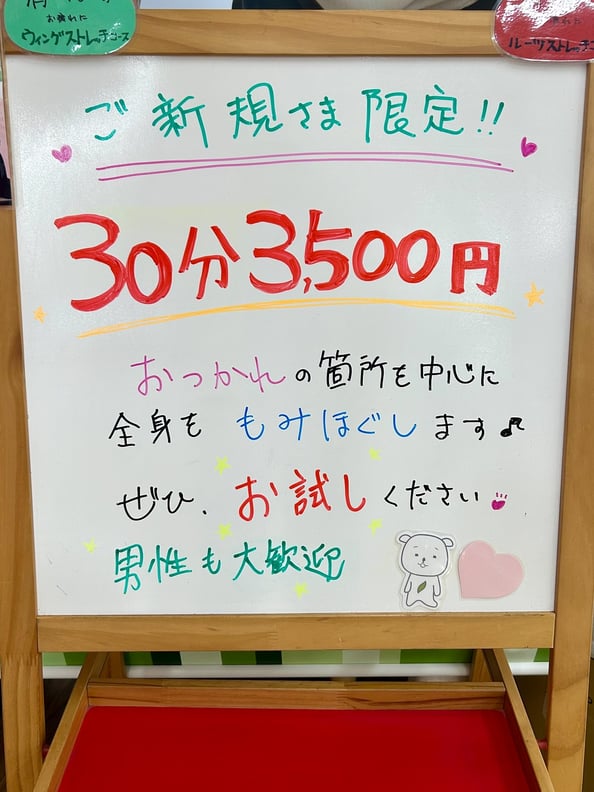 お疲れに
ウィングストレッチコース
ルーツストレッチコ
ご新規さま限定!!
30分3,500円
おつかれの箇所を中心に
全身を もみほぐします♪
ぜひ、お試しください
男性も大歓迎